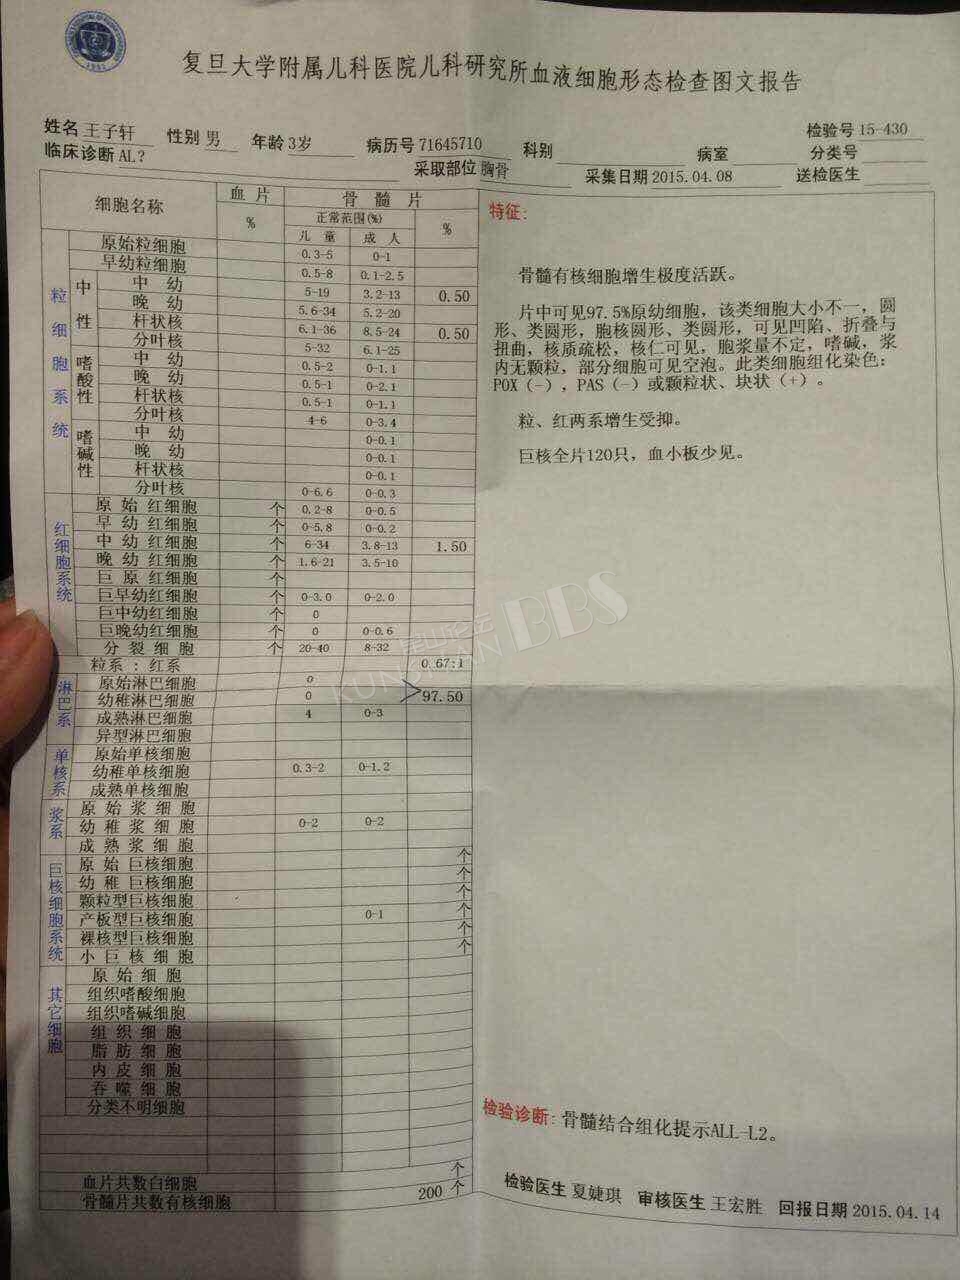 复旦大学附属儿科医院儿科研究所血液细胞形态检查图文报告
姓名 王子轩 性别 男 年龄 3岁 病历号 71645710 科别 病室 检验号 15-430
临床诊断 AL? 采取部位 胸骨 采集日期 2015.04.08 送检医生 分类号
细胞名称 血片 骨髓片
% 正常范围(%) %
儿童 成人
粒细胞系统
原始粒细胞 0.3-5 0-1
早幼粒细胞 0.5-8 0.1-2.5
中性
中幼 5-19 3.2-13 0.50
晚幼 5.6-34 5.2-20
杆状核 6.1-36 8.5-24 0.50
分叶核 5-32 6.1-25
嗜酸性
中幼 0.5-2 0-1.1
晚幼 0.5-1 0-2.1
杆状核 0.5-1 0-1.1
分叶核 4-6 0-3.4
嗜碱性
中幼 0-0.1
晚幼 0-0.1
杆状核 0-0.1
分叶核 0-6.6 0-0.3
红细胞系统
原始红细胞 个 0.2-8 0-0.5
早幼红细胞 个 0-5.8 0-0.2
中幼红细胞 个 6-34 3.8-13 1.50
晚幼红细胞 个 1.6-21 3.5-10
巨原红细胞 个
巨早幼红细胞 个 0-3.0 0-2.0
巨中幼红细胞 个 0
巨晚幼红细胞 个 0 0-0.6
分裂细胞 个 20-40 8-32
粒系:红系 0.67:1
淋巴系
原始淋巴细胞 0
幼稚淋巴细胞 0 97.50
成熟淋巴细胞 4 0-3
异型淋巴细胞
单核系
原始单核细胞
幼稚单核细胞 0.3-2 0-1.2
成熟单核细胞
浆系
原始浆细胞
幼稚浆细胞 0-2 0-2
成熟浆细胞
巨核细胞系统
原始巨核细胞 个
幼稚巨核细胞 个
颗粒型巨核细胞 个
产板型巨核细胞 0-1 个
裸核型巨核细胞 个
小巨核细胞 个
其它细胞
原始细胞
组织嗜酸细胞
组织嗜碱细胞
组织细胞
脂肪细胞
内皮细胞
吞噬细胞
分类不明细胞
血片共数白细胞 个
骨髓片共数有核细胞 200 个
特征:
骨髓有核细胞增生极度活跃。
片中可见97.5%原幼细胞,该类细胞大小不一,圆
形、类圆形,胞核圆形、类圆形,可见凹陷、折叠与
扭曲,核质疏松,核仁可见,胞浆量不定,嗜碱,浆
内无颗粒,部分细胞可见空泡。此类细胞组化染色:
POX(-),PAS(-)或颗粒状、块状(+)。
粒、红两系增生受抑。
巨核全片120只,血小板少见。
检验诊断:骨髓结合组化提示ALL-L2。
检验医生 夏婕琪 审核医生 王宏胜 回报日期 2015.04.14
昆山论坛
KUNSHAN BBS